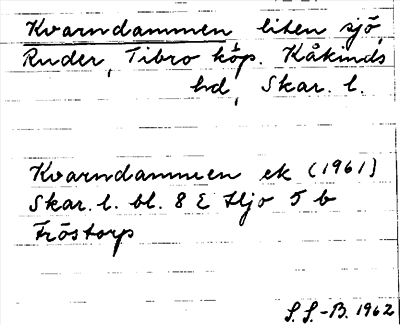 Kvarndammen liten sjö,
Ruder, Tibro köp. Kåkinds
hd, Skar. l.
Kvarndammen ek (1961)
Skar. l. bl. 8 E Hjo 5 b
Fröstorp
S. S.-B. 1962